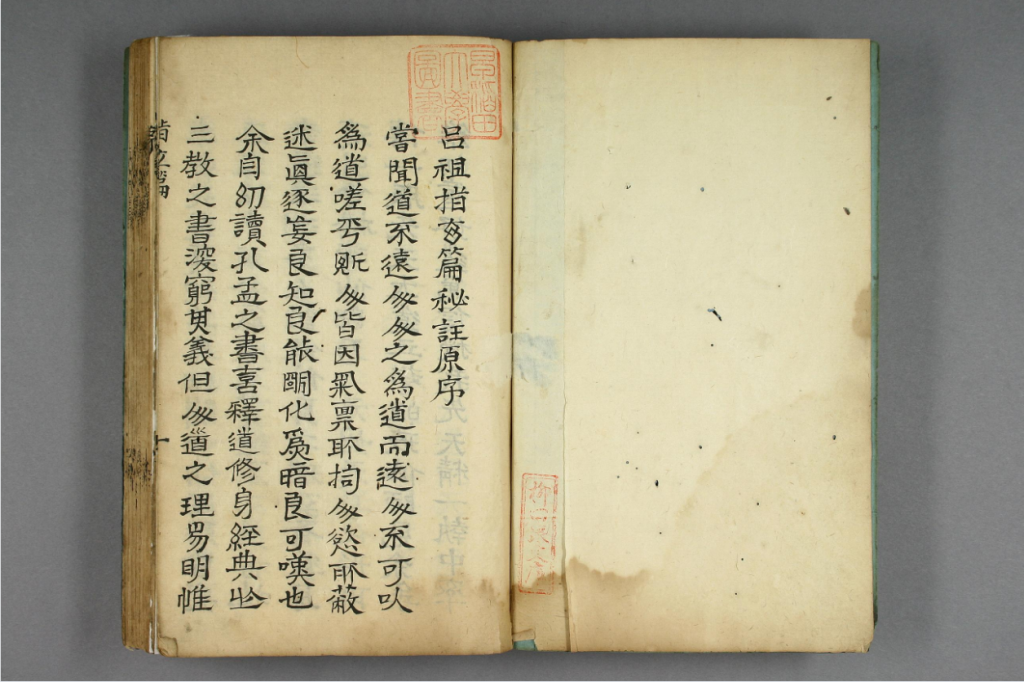 呂祖指玄篇秘註原序
嘗聞道不遠人人之爲道而遠人不可以
爲道嗟乎贓人皆因氣禀所拘人慾所蔽
迷眞逐妄良知良能明化爲暗良可嘆也
余自幼讀孔孟之書喜釋道修身經典此
三教之書深窮其義但人道之理易明惟